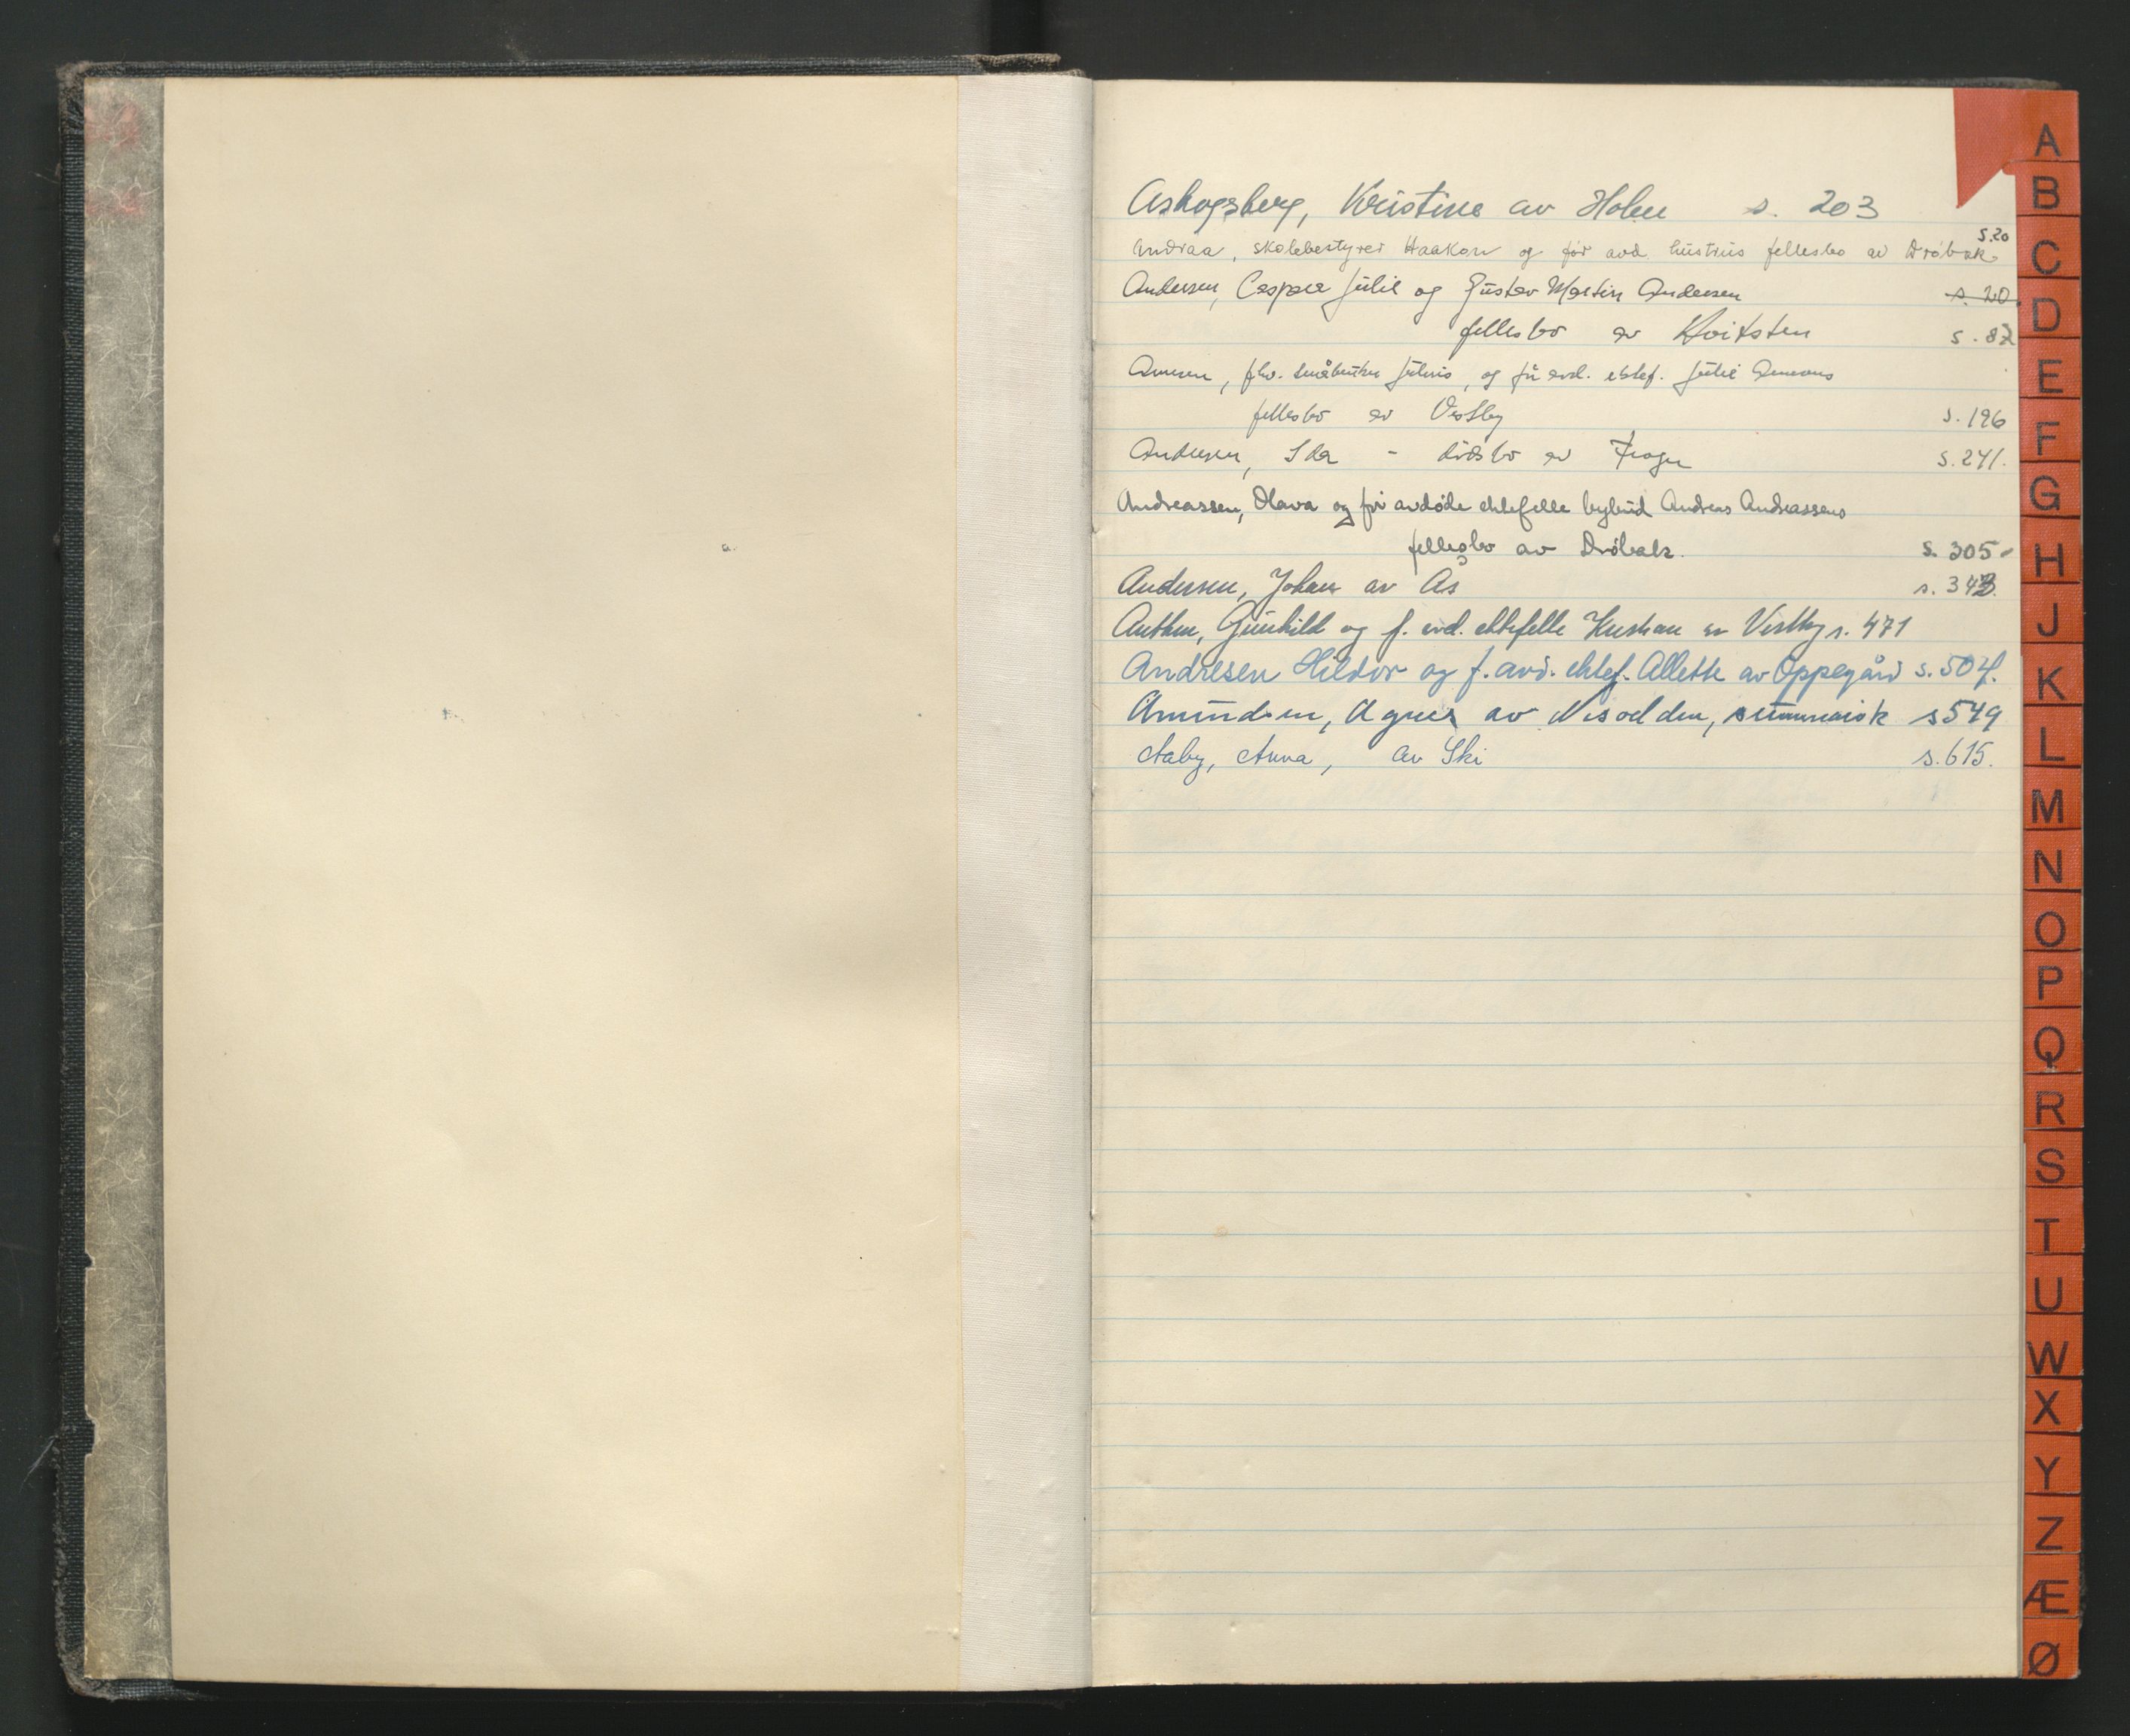 Askogsberg, Kristine av Holen s. 203
s.20
Andraa, skolebestyrer Haakon og før avd. hustrus fellesbo av Drøbak
Andersen, Caspara Julie og Gustav Martin Andersen s. 20
fellesbo av Hvitsten s. 82
fhv. småbruker Julius, og før avd. ektef. Julie
fellesbo av Vestby s. 196
Andersen, Ida - dødsbo av Frogn s. 241.
Andreassen, Olava og før avdøde ektefelle bybud Andreas Andreassens
fellesbo av Drøbak. s. 305
Andersen, Johan av Ås s. 343.
Anthun, Gunhild og f. avd. ektefelle av Vestby s. 471
Andresen Hildor og f. avd. ektef. Allette av Oppegård s. 504.
Amundsen, Agnes av Nesodden, summarisk s 549
Aaby, Anna, av Ski s. 615.
A
B
C
D
E
F
G
H
J
K
L
M
N
O
P
Q
R
S
T
U
W
X
Y
Z
Æ
Ø